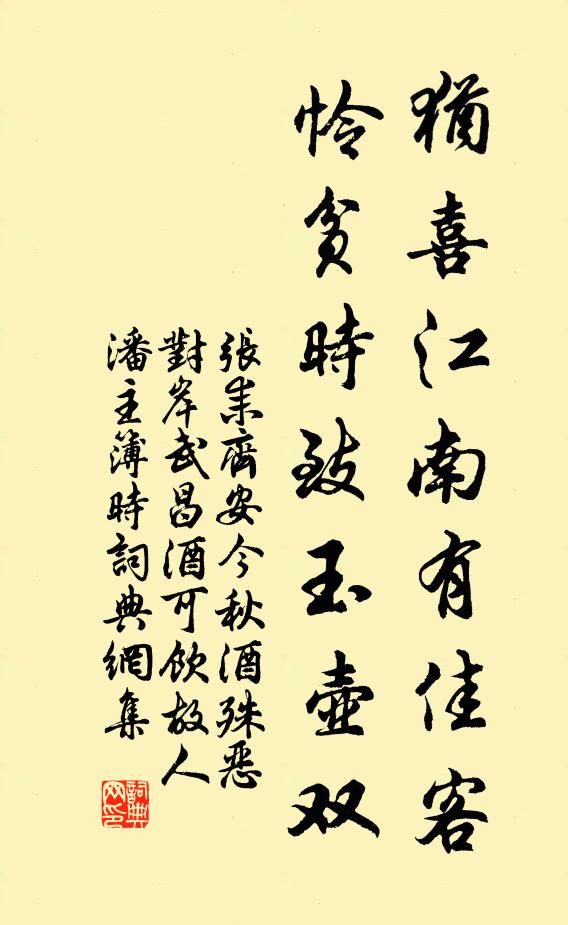 猶喜江南有佳客
怜貧時致玉壺双
張耒齊安今秋酒殊恶
對岸武昌酒可飲故人
潘主簿時詞典網集
詞典
网印